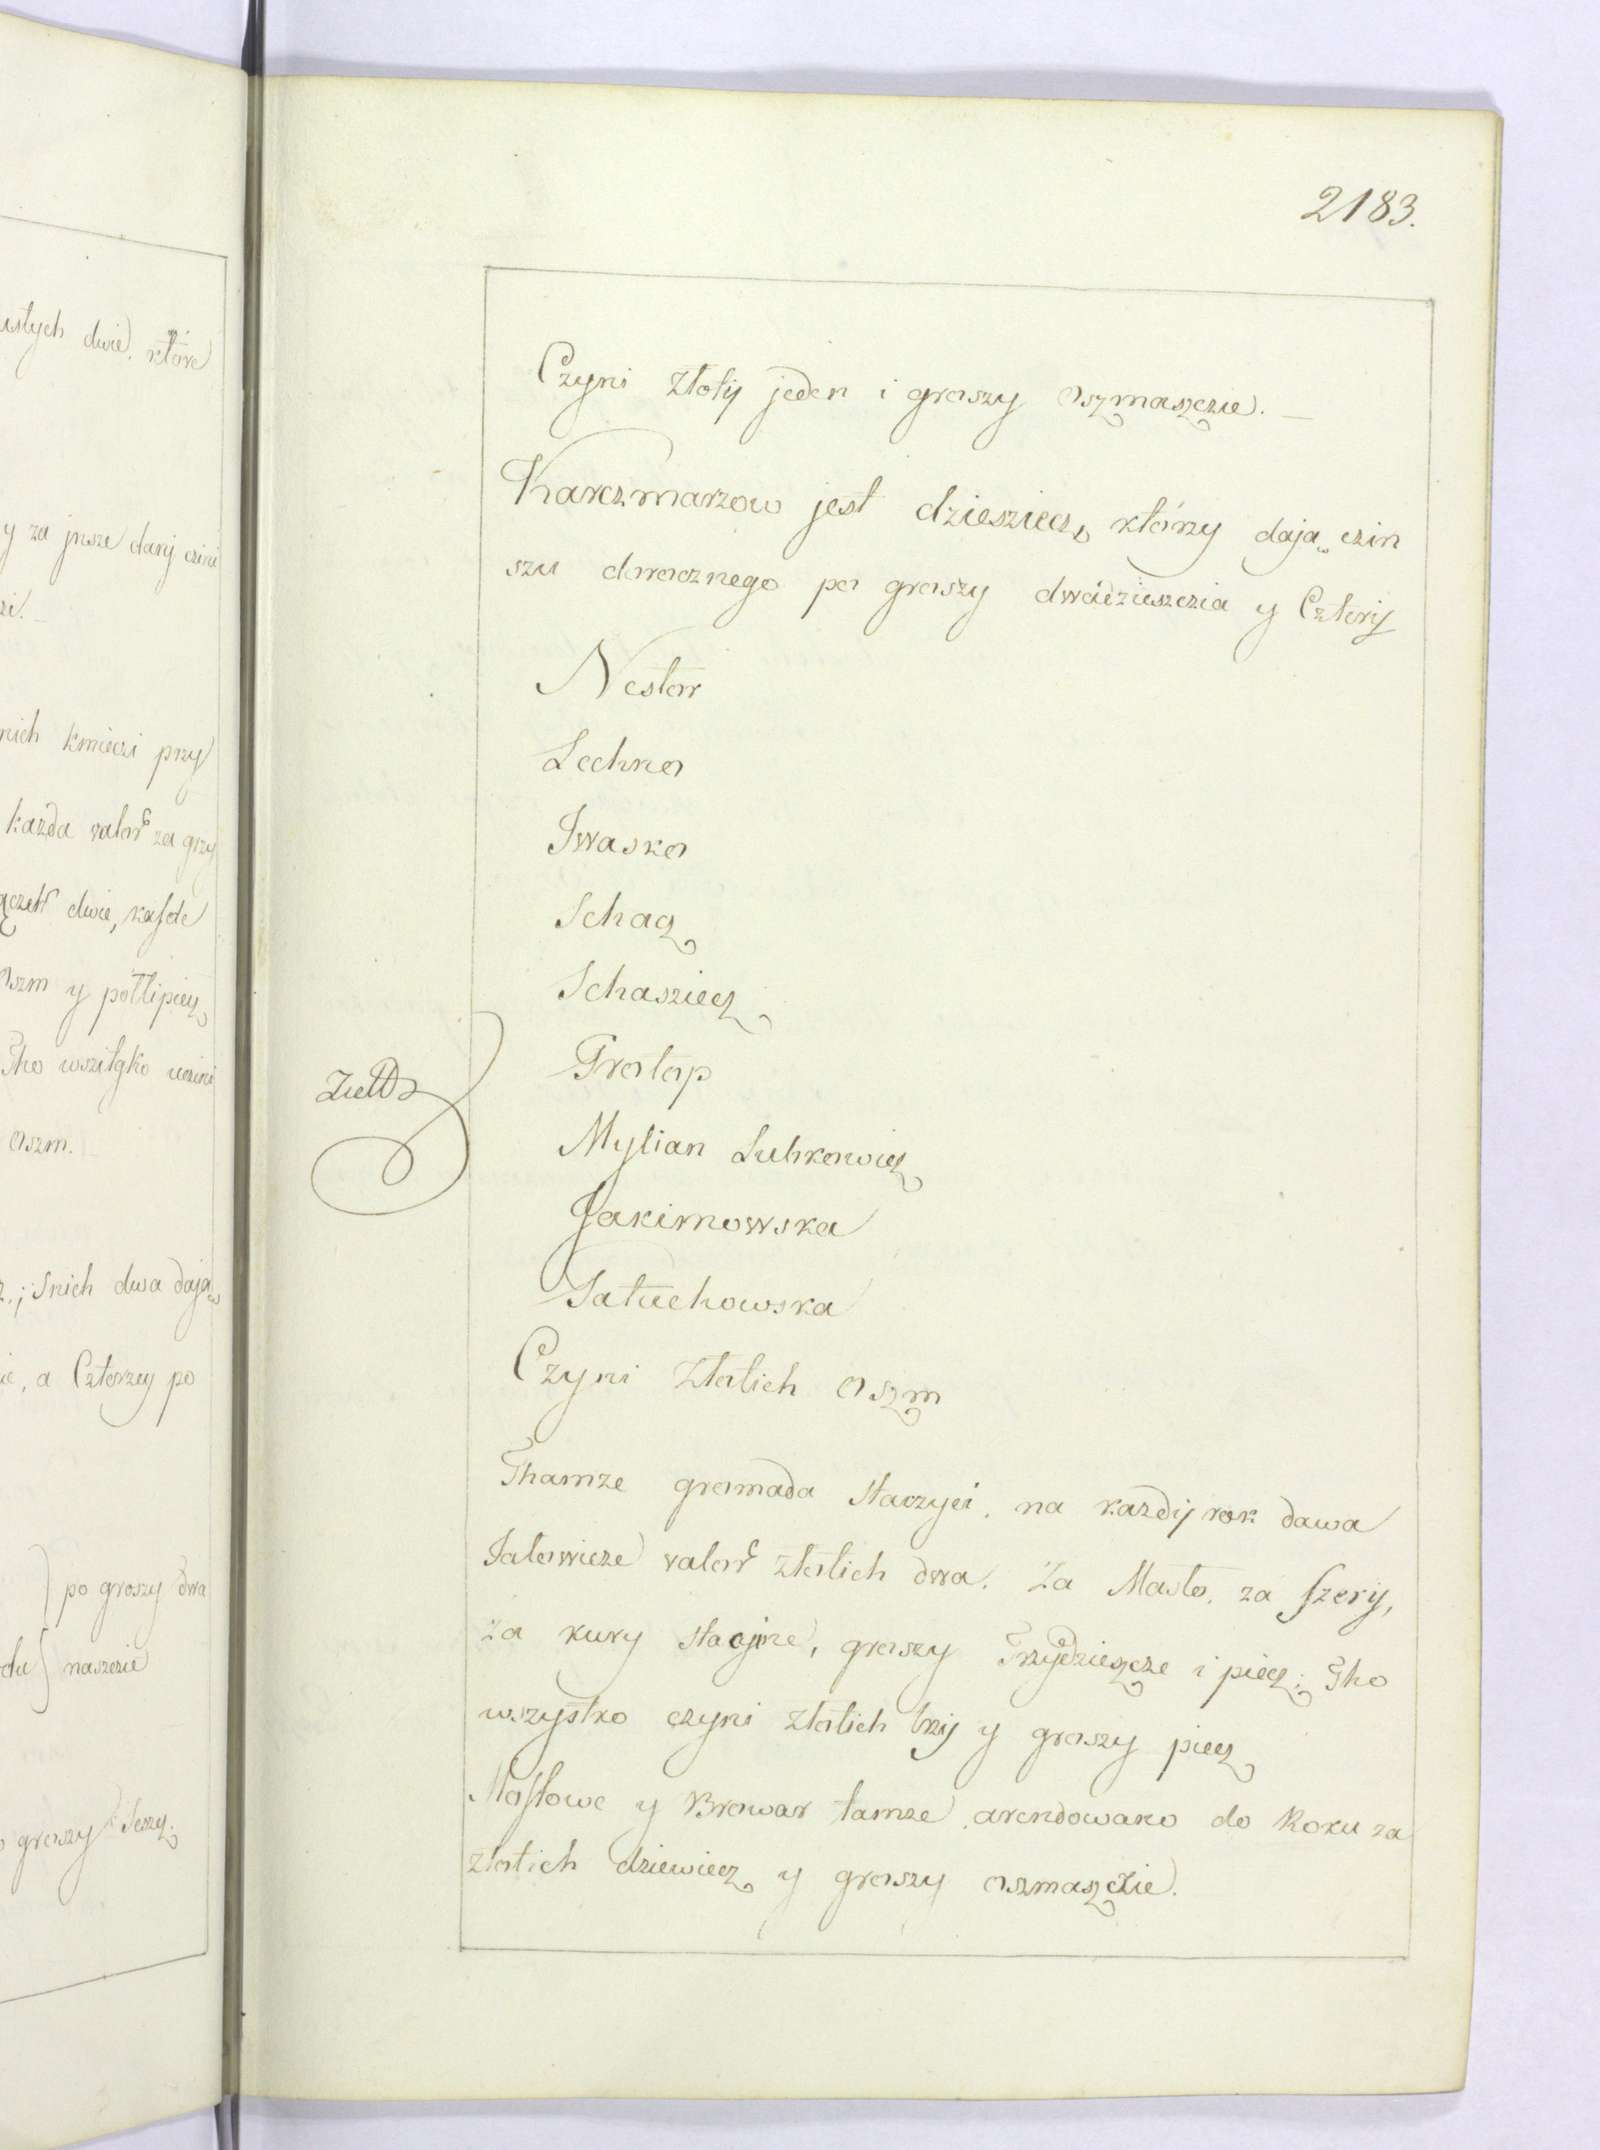 ustych dwie, które
y za jnsze danij czini
zi.
nich kmieczi przy
każda valor za grzy
dwie, kaſde
oszm y półtipiecz
Tho wszitgko uczini
oszm.
z.; Snich dwa dają
ie, a Czterzey po
po groszy dwa
du naszezie
groszy Seszcz.
2183.
Czyni złotij jeden i groszy oszmaszczie.
Karczmarzow jest dziesziecz, którzy dają czin
szu dorocznego po groszy dwadzieszczia y Czterij
Nestor
Lechno
Iwasko
Schacz
Schasziecz
Protop
Mylian Luhkowicz
Jakimowska
Satuchowska
Czyni Złotich oszm
Thamze gromada starzyei, na kazdij rok dawa
Jałowicze valor złotich dwa. Za Masło, za ſzerij,
za kury stacyine, groszy Trzydzieszcze i piecz; Tho
wszystko czyni złotich trzij y groszy piecz
Moſtowe y Browar tamze arendowano do Roku za
złotich dziewiecz y groszy oszmaszczie.